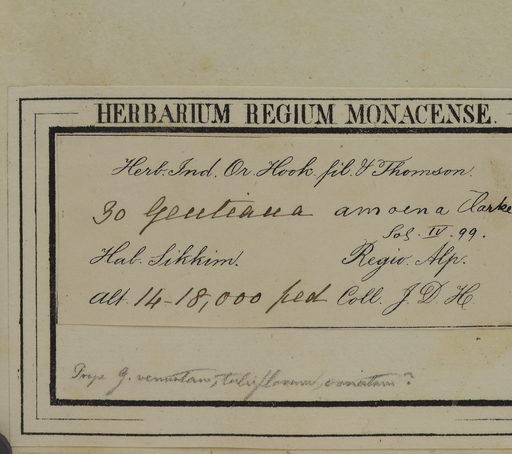 HERBARIUM REGIUM MONACENSE.
Herb. Ind. Or. Hook. fil. & Thomson.
30 Gentiana amoena Clarke
IV. 99.
Hab. Sikkim. Regio. Alp.
Alt. 14-18,000 ped Coll. J. D. H.
Prope G. venustam,